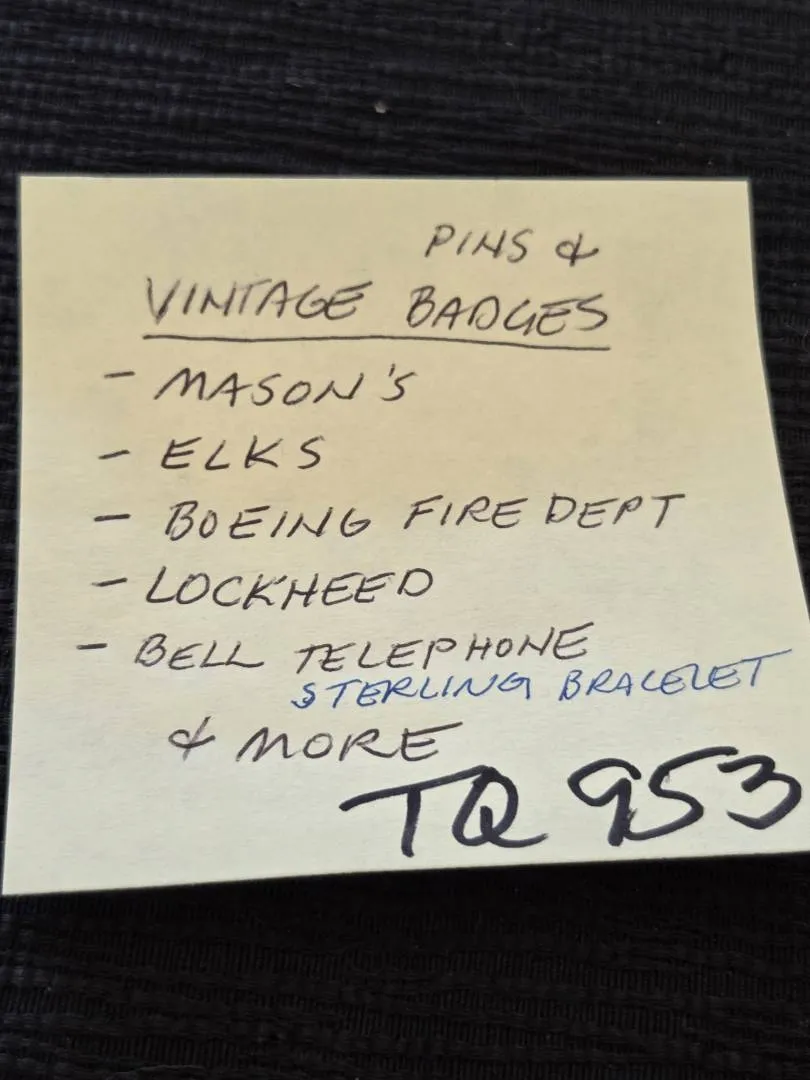 PINS &
VINTAGE BADGES
- MASON'S
- ELKS
- BOEING FIRE DEPT
- LOCKHEED
- BELL TELEPHONE
STERLING BRACELET
& MORE
TQ 953